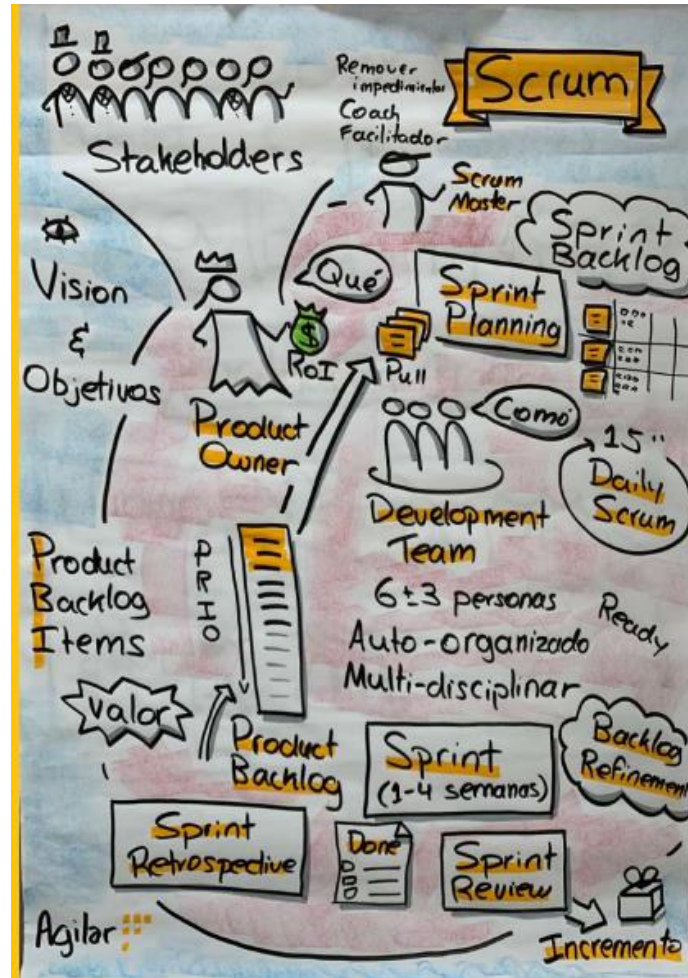 Scrum
Remover
impedimentos
Coach
Facilitador
Stakeholders
Scrum
Master
Sprint
Backlog
Vision
&
Objetivos
Qué
Sprint
Planning
$
RoI
Pull
Product
Owner
Como
15"
Daily
Scrum
Development
Team
Product
Backlog
Items
PRIO
6±3 personas
Auto-organizado
Multi-disciplinar
Ready
Valor
Product
Backlog
Sprint
(1-4 semanas)
Backlog
Refinement
Sprint
Retrospective
Done
Sprint
Review
Agilar
Incremento